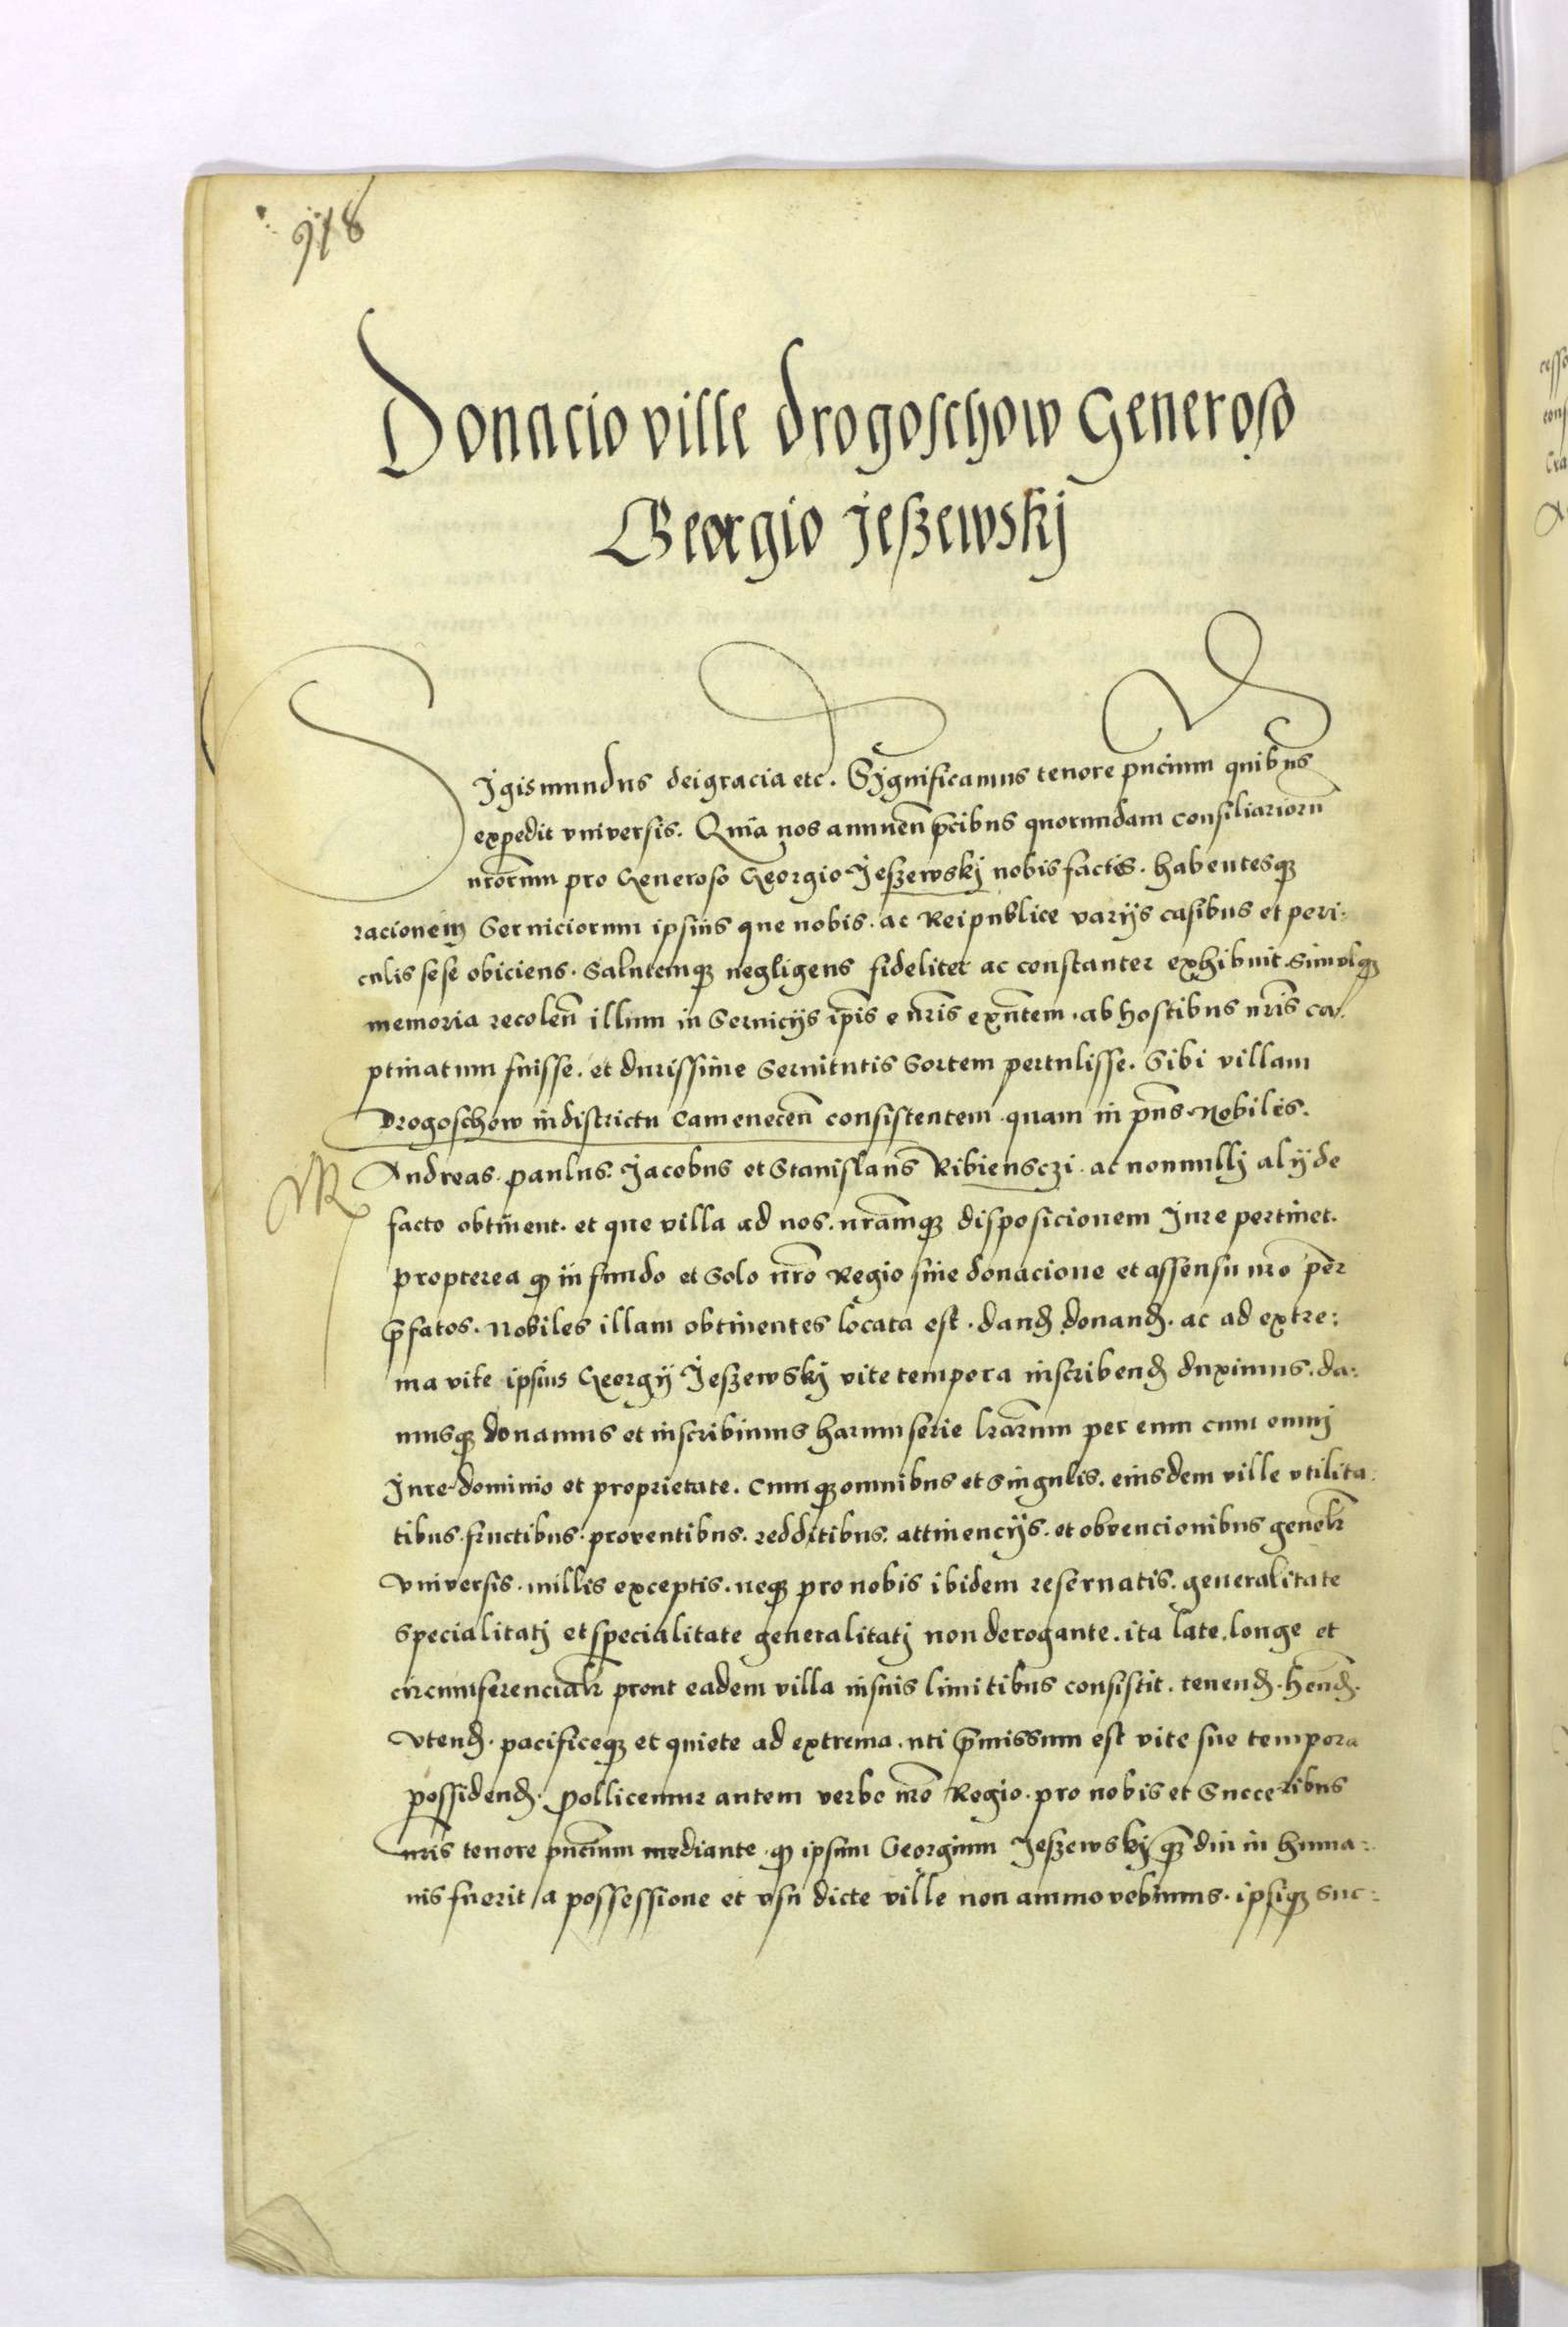 978
Donacio ville Drogoschow Generoso
Georgio Jeszewskj
Sigismundus dei gracia etc. Significamus tenore pñcium quibus
expedit vniversis. Quia nos annueñ p̃cibus quorundam consiliariorũ
nrõrum pro Generoso Georgio Jeszewskj nobis factis. habentesqꝫ
racionem Serviciorum ipsius que nobis. ac Reipublice varijs casibus et peri:
culis sese obiciens. Salutemqꝫ negligens fideliter ac constanter exhibuit. Simulqꝫ
memoria recoleñ illum in Servicijs ip̃is e nr̃is exñtem. ab hostibus nr̃is ca/
ptivatum fuisse. et durissime Servitutis Sortem pertulisse. Sibi villam
Drogoschow in districtu Cameneceñ consistentem. quam in pñs Nobiles.
Andreas. paulus. Jacobus et Stanislaus Ribiensczi. ac nonnullj alij de
facto obtinent. et que villa ad nos. nrãmqꝫ disposicionem Jure pertinet.
propterea ꝙ in fundo et Solo nrõ Regio sine donacione et assensu nrõ per
p̃fatos. Nobiles illam obtinentes locata est. danđ donanđ. ac ad extre:
ma vite ipsius Georgij Jeszewskj vite tempora inscribenđ duximus. da:
musqꝫ donamus et inscribimus harum serie lrãrum per eum cum omnj
Jure dominio et proprietate. Cumqꝫ omnibus et Singulis. eiusdem ville vtilita:
tibus. fructibus. proventibus. redditibus. attinencijs. et obvencionibus genelr̃
vniversis. nullis exceptis. neqꝫ pro nobis ibidem reservatis. generalitate
Specialitatj et specialitate generalitatj non derogante. ita late. longe et
circumferencialr̃ prout eadem villa in suis limitibus consistit. tenenđ. heñđ.
vtenđ. pacificeqꝫ et quiete ad extrema. uti p̃missum est vite sue tempora
possidenđ. Pollicemur autem verbo nrõ Regio. pro nobis et Succeribus
nris tenore pñcium mediante. ꝙ ipsum Georgium Jeszewskj qꝫ diu in huma:
nis fuerit / a possessione et vsu dicte ville non ammovebimus. ipsiqꝫ suc: